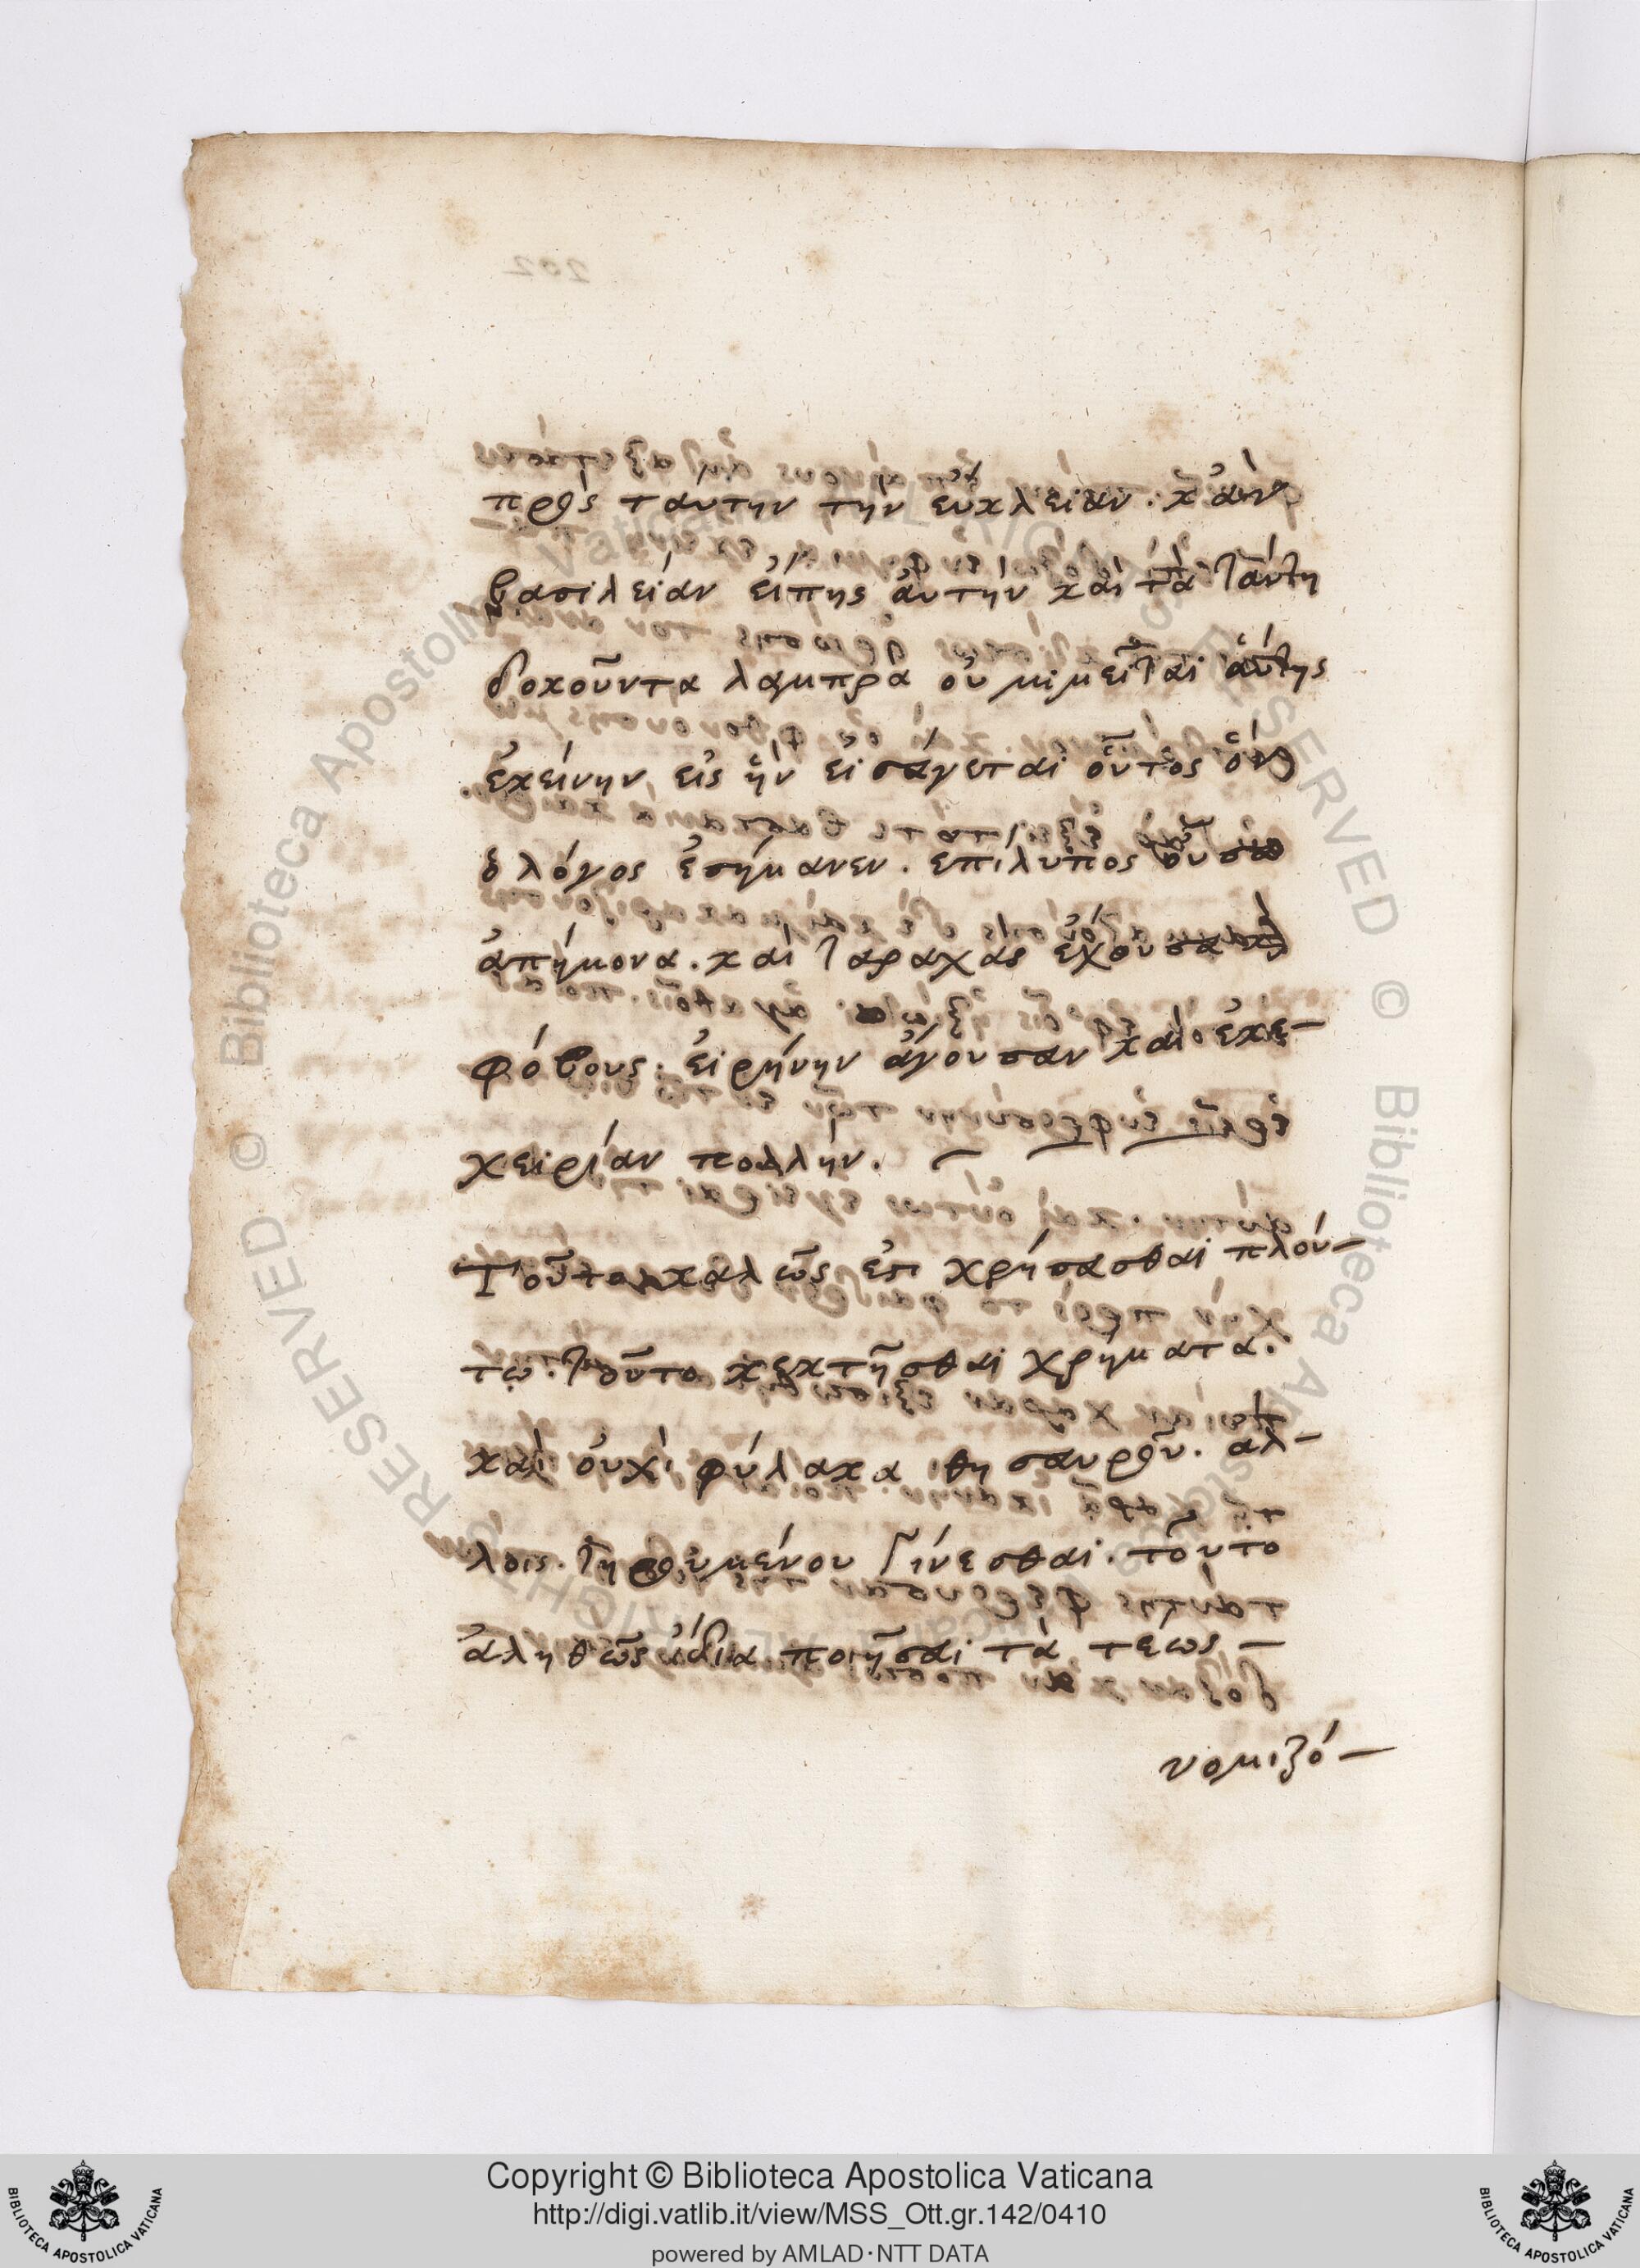 πρὸς ταύτην τὴν εὔκλειαν. κἂν
βασιλείαν εἴπῃς αὐτὴν καὶ τὰ ταύτῃ
δοκοῦντα λαμπρὰ οὐ μιμεῖται αὕτης
ἐκείνην, εἰς ἣν εἰσάγεται οὗτος ὃν
ὁ λόγος ἐσήμανεν. ἐπίλυπος
ἀπήμονα. καὶ ταραχὰς ἔχουσα καὶ
φόβους. εἰρήνην ἄγουσαν καὶ ἐκε-
χειρίαν πολλήν. –
Τοῦτο καλῶς ἐστι χρήσασθαι πλού-
τῳ. τοῦτο κεκτῆσθαι χρήματα.
καὶ οὐχὶ φύλακα θησαυρῶν. ἀλ-
λοις. τηρουμένου γίνεσθαι. τοῦτο
ἀληθῶς ἴδια ποιῆσαι τὰ τέως –
νομιζό-
202
Copyright © Biblioteca Apostolica Vaticana
http://digi.vatlib.it/view/MSS_Ott.gr.142/0410
powered by AMLAD·NTT DATA
BIBLIOTECA APOSTOLICA VATICANA
BIBLIOTECA APOSTOLICA VATICANA